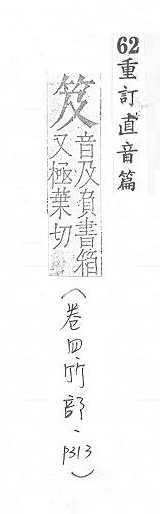 62重訂直音篇
笈音及負書箱又極葉切
（卷四.竹部.P313）